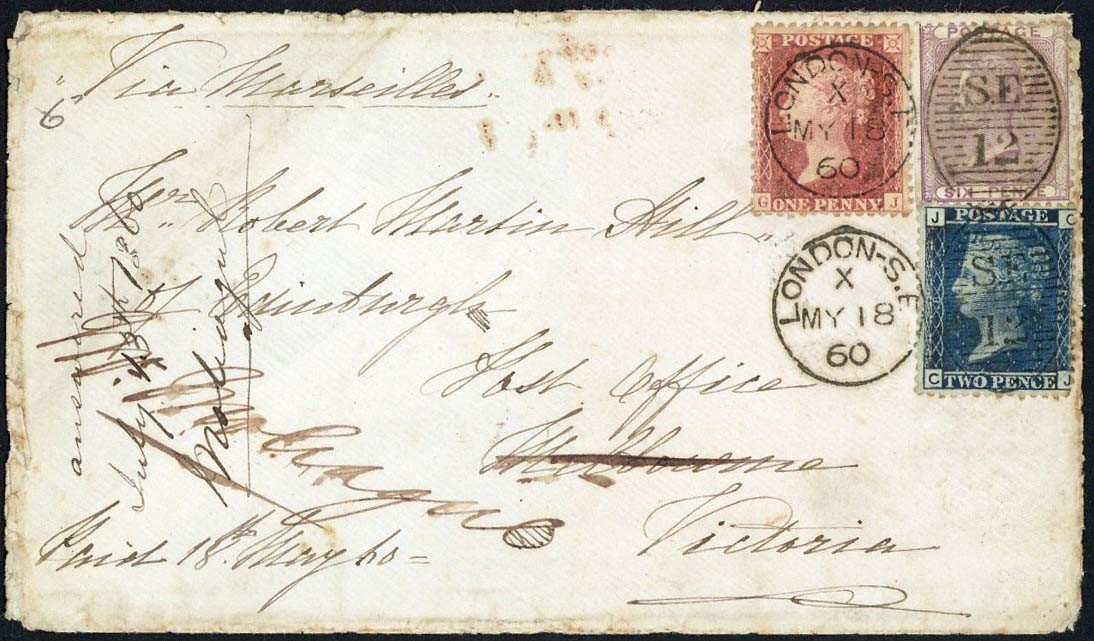 "Via Marseilles"
POSTAGE
G ONE PENNY J
LONDON-S.E
X
MY 18
60
POSTAGE
SIX PENCE
S.E
12
J POSTAGE C
C TWO PENCE J
S.E
12
LONDON-S.E
X
MY 18
60
Robert Martin Hill
of Edinburgh
Post Office
Melbourne
Victoria
Paid 18th May 60=
answered
July 13th 1860